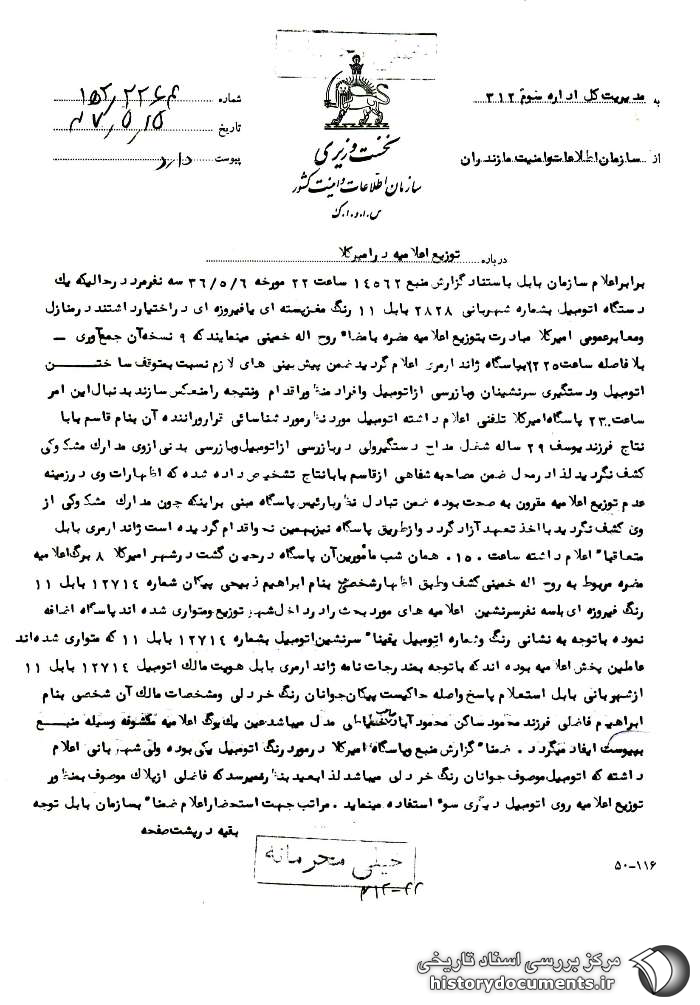 به مدیریت کل اداره سوم ۳۱۲
از سازمان اطلاعات و امنیت مازندران
نخست وزیری
سازمان اطلاعات و امنیت کشور
س.ا.و.ا.ک
شماره ۱۵۲/۲۲۶۴
تاریخ ۴۷/۵/۱۵
پیوست دارد
درباره توزیع اعلامیه در امیرکلا
برابر اعلام سازمان بابل باستناد گزارش منبع ۱۴۵۶۲ ساعت ۲۲ مورخه ۳۶/۵/۶ سه نفر مرد در حالیکه یک
دستگاه اتومبیل بشماره شهربانی ۲۸۲۸ بابل ۱۱ رنگ مغزپسته ای یا فیروزه ای در اختیار داشتند در منازل
ومعابر عمومی امیرکلا مبادرت بتوزیع اعلامیه مضره بامضاء روح اله خمینی مینمایند که ۹ نسخه آن جمع آوری –
بلا فاصله ساعت ۲۲۲۵ بپاسگاه ژاندارمری اعلام گردید ضمن پیش بینی های لازم نسبت بمتوقف ساختن
اتومبیل ودستگیری سرنشینان وبازرسی ازاتومبیل وافراد منظور اقدام ونتیجه را منعکس سازند بدنبال این امر
ساعت ۲۳۰۰ پاسگاه امیرکلا تلفنی اعلام داشته اتومبیل مورد نظر مورد شناسائی قرار وراننده آن بنام قاسم بابا
نتاج فرزند یوسف ۲۹ ساله شغل مداح دستگیر ولی در بازرسی ازاتومبیل وبازرسی بدنی ازوی مدارک مشکوکی
کشف نگردید لذا در محل ضمن مصاحبه شفاهی ازقاسم بابانتاج تشخیص داده شده که اظهارات وی در زمینه
عدم توزیع اعلامیه مقرون به صحت بوده ضمن تبادل نظر با رئیس پاسگاه مبنی براینکه چون مدارک مشکوکی از
وی کشف نگردید با اخذ تعهد آزاد گردد وازطریق پاسگاه نیز بهمین نحو اقدام گردیده است ژاندارمری بابل
متعاقباً اعلام داشته ساعت ۰۱۵۰ همان شب مأمورین آن پاسگاه در حین گشت در شهر امیرکلا ۸ برگ اعلامیه
مضره مربوط به روح اله خمینی کشف وطبق اظهار شخصی بنام ابراهیم ذبیحی پیکان شماره ۱۲۷۱۴ بابل ۱۱
رنگ فیروزه ای باسه نفر سرنشین اعلامیه های مورد بحث را در داخل شهر توزیع ومتواری شده اند پاسگاه اضافه
نموده باتوجه به نشانی رنگ وشماره اتومبیل یقیناً سرنشین اتومبیل بشماره ۱۲۷۱۴ بابل ۱۱ که متواری شده اند
عاملین پخش اعلامیه بوده اند که باتوجه بمندرجات نامه ژاندارمری بابل هویت مالک اتومبیل ۱۲۷۱۴ بابل ۱۱
ازشهربانی بابل استعلام پاسخ واصله حاکیست پیکان جوانان رنگ خردلی ومشخصات مالک آن شخصی بنام
ابراهیم فاضلی فرزند محمود ساکن محمود آباد مدل میباشد عین یک برگ اعلامیه مکشوفه وسیله منبع
بپیوست ایفاد میگردد . ضمناً گزارش منبع وپاسگاه امیرکلا در مورد رنگ اتومبیل یکی بوده ولی شهربانی اعلام
داشته که اتومبیل موصوف جوانان رنگ خردلی میباشد لذا بعید بنظر نمیرسد که فاضلی ازپلاک موصوف بمنظور
توزیع اعلامیه روی اتومبیل دیگری سوء استفاده مینماید . مراتب جهت استحضار اعلام ضمناً بسازمان بابل توجه
بقیه در پشت صفحه
خیلی محرمانه
۳۱۲-۴۲
۵۰-۱۱۶
مرکز بررسی اسناد تاریخی
historydocuments.ir